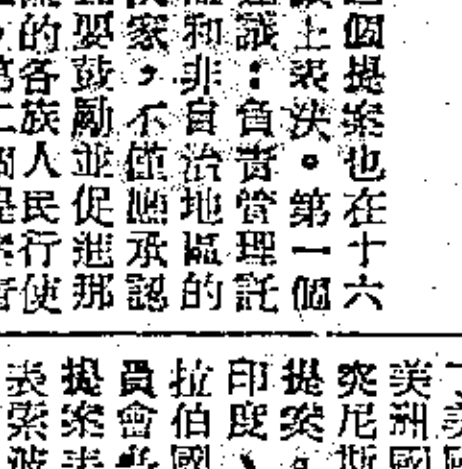 個提案也在十六
上表決。第一個
議：負責管理託
和非自治地區的
家，不僅應承認
要鼓勵並促進那
的各族人民行使
美洲國
突尼斯
提案。
印度、
拉伯國
員會
提案表
表索